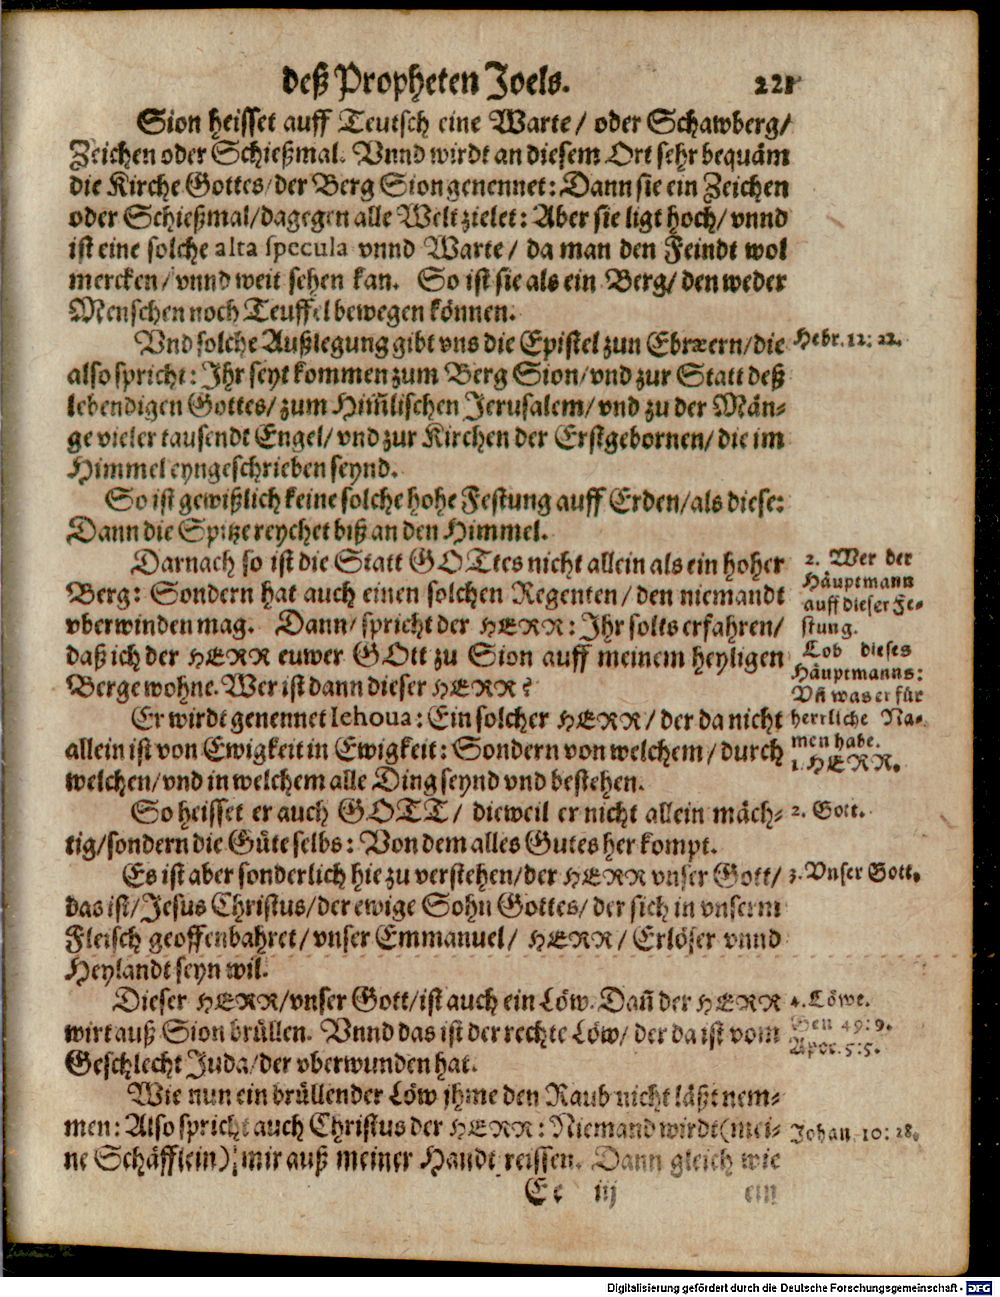 deß Propheten Joels. 221
Sion heisset auff Teutsch eine Warte / oder Schawberg/
Zeichen oder Schießmal. Vnnd wirdt an diesem Ort sehr bequäm
die Kirche Gottes/der Berg Sion genennet: Dann sie ein Zeichen
oder Schießmal/dagegen alle Welt zielet: Aber sie ligt hoch/ vnnd
ist eine solche alta specula vnnd Warte / da man den Feindt wol
mercken/ vnnd weit sehen kan. So ist sie als ein Berg/ den weder
Menschen noch Teuffel bewegen können.
Vnd solche Außlegung gibt vns die Epistel zun Ebræern/die
Hebr. 12: 22.
also spricht: Ihr seyt kommen zum Berg Sion/vnd zur Statt deß
lebendigen Gottes/ zum Him̃lischen Jerusalem/ vnd zu der Män-
ge vieler tausendt Engel/ vnd zur Kirchen der Erstgebornen/ die im
Himmel eyngeschrieben seynd.
So ist gewißlich keine solche hohe Festung auff Erden/als diese:
Dann die Spitze reychet biß an den Himmel.
Darnach so ist die Statt GOTtes nicht allein als ein hoher
Berg: Sondern hat auch einen solchen Regenten/ den niemandt
vberwinden mag. Dann/ spricht der HERR: Ihr solts erfahren/
daß ich der HERR euwer GOtt zu Sion auff meinem heyligen
Berge wohne. Wer ist dann dieser HERR?
2. Wer der
Häuptmann
auff dieser Fe-
stung.
Lob dieses
Häuptmanns:
Vñ was er für
herrliche Na-
men habe.
1. HERR.
Er wirdt genennet Iehoua: Ein solcher HERR/ der da nicht
allein ist von Ewigkeit in Ewigkeit: Sondern von welchem/ durch
welchen/vnd in welchem alle Ding seynd vnd bestehen.
So heisset er auch GOTT/ dieweil er nicht allein mäch-
2. Gott.
tig/sondern die Güte selbs: Von dem alles Gutes her kompt.
Es ist aber sonderlich hie zu verstehen/der HERR vnser Gott/
3. Vnser Gott.
das ist/Jesus Christus/der ewige Sohn Gottes/ der sich in vnserm
Fleisch geoffenbahret/ vnser Emmanuel/ HERR/ Erlöser vnnd
Heylandt seyn wil.
Dieser HERR/vnser Gott/ist auch ein Löw. Dañ der HERR
4. Löwe.
wirt auß Sion brüllen. Vnnd das ist der rechte Löw/ der da ist vom
Gen 49: 9.
Apoc. 5: 5.
Geschlecht Juda/der vberwunden hat.
Wie nun ein brüllender Löw jhme den Raub nicht läßt nem-
men: Also spricht auch Christus der HERR: Niemand wirdt (mei-
Johan. 10: 28.
ne Schäfflein) mir auß meiner Handt reissen. Dann gleich wie
Ee iij ein
Digitalisierung gefördert durch die Deutsche Forschungsgemeinschaft - DFG